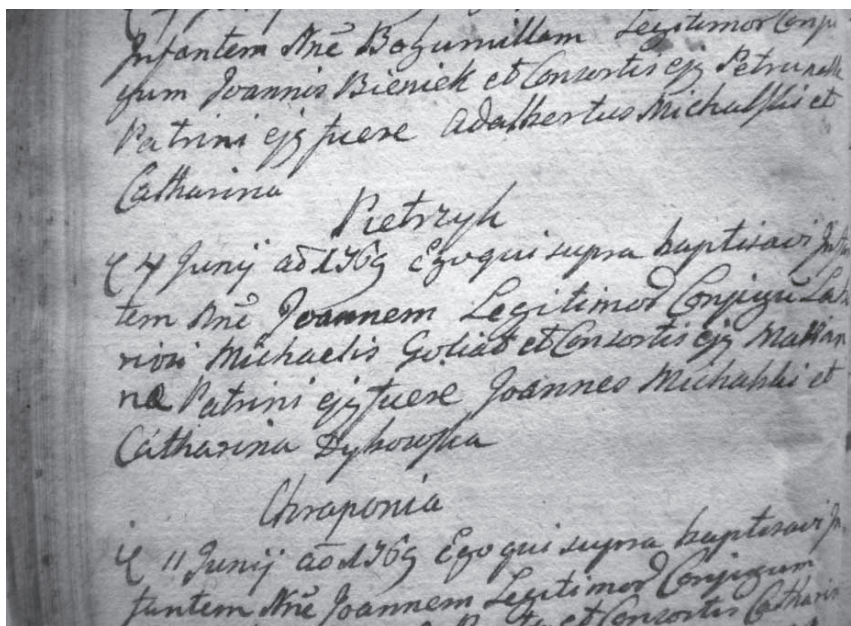 Infantem Nnē Bohumillam Legitimor Conju
gum Joannis Bieniek et Consortis ejg Petrunelle
Patrini ejg fuere Adalbertus Michalski et
Catharina
Pietrzyk
4 Junij ad 1769 Ego qui supra baptisavi Infan
tem Nnē Joannem Legitimor Conjugū Labo
riosi Michaelis Goliat et Consortis ejg Marian
na Patrini ejg fuere Joannes Michalski et
Catharina Dykowska
Chraponia
11 Junij ad 1769 Ego qui supra baptisavi In
fantem Nnē Joannem Legitimor Conjugum
et Consortis Catharin